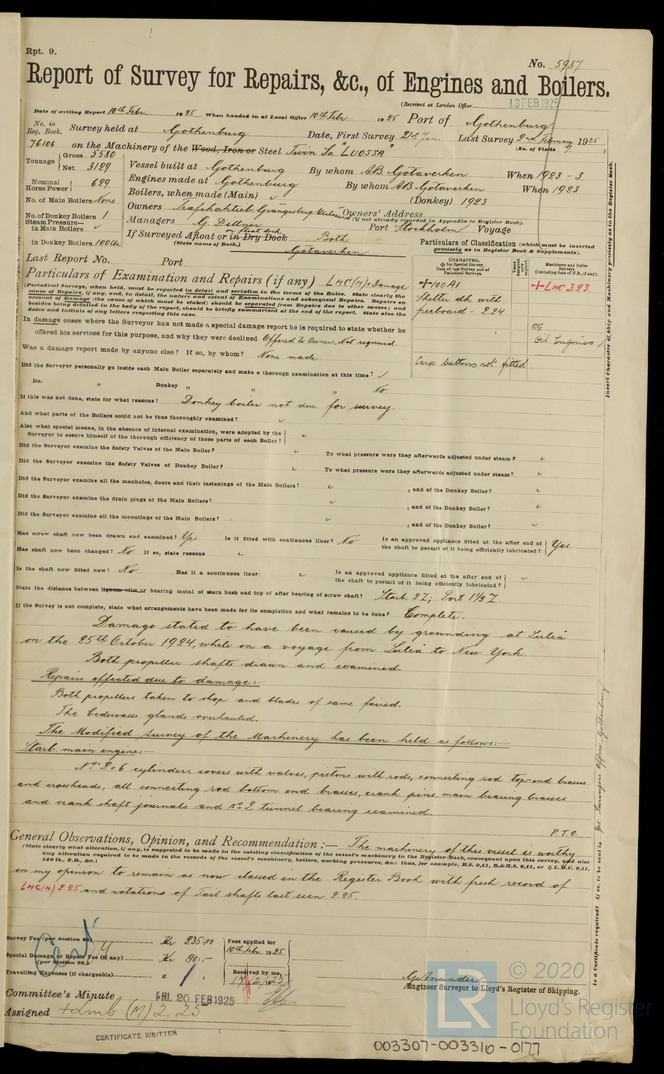 Rpt. 9.
No. 5987
Report of Survey for Repairs, &c., of Engines and Boilers.
(Received at London Office 13 FEB 1925
Date of writing Report 10th Febr. 1925 When handed in at Local Office 10th Febr. 1925 Port of Gothenburg
No. in Reg. Book. Survey held at Gothenburg Date, First Survey 21st Jan. Last Survey 2nd February 1925
(No. of Visits
76106 on the Machinery of the Wood, Iron or Steel Twin Sc "LUOSSA"
Tonnage Gross 5580
Net 3129
Vessel built at Gothenburg By whom AB. Götaverken When 1923 - 3.
Nominal Horse Power 629
Engines made at Gothenburg By whom AB. Götaverken When 1923
No. of Main Boilers None
Boilers, when made (Main) (Donkey) 1923
No. of Donkey Boilers 1
Owners Trafikaktieb. Grängesberg Owners' Address
(if not already recorded in Appendix to Register Book.)
Steam Pressure— in Main Boilers
Managers G. Dittner Port Stockholm Voyage
in Donkey Boilers 100 lb.
If Surveyed Afloat or in Dry Dock Both
(State name of Dock.) Götaverken
Particulars of Classification (which must be inserted precisely as in Register Book & Supplement).
Last Report No. Port
Particulars of Examination and Repairs (if any) LMC(M) & Damage
CHARACTER,
+100A1
Shelter dk. with
freeboard - 2.24
+LMC 3.23
Oil Engines
Cargo battens not fitted
Insert Character of Ship and Machinery precisely as in the Register Book.
(Periodical Surveys, when held, must be reported in detail and seriatim in the terms of the Rules. State clearly the
cause of Repairs, if any, and, in detail, the nature and extent of Examinations and subsequent Repairs. Repairs on
account of Damage (the cause of which must be stated) should be separated from Repairs due to other causes; and
besides being detailed in the body of the report, should be briefly summarised at the end of the report. State also the
dates and initials of any letters respecting this case.
In damage cases where the Surveyor has not made a special damage report he is required to state whether he
offered his services for this purpose, and why they were declined Offered to Owners. Not required.
Was a damage report made by anyone else? If so, by whom? None made
Did the Surveyor personally go inside each Main Boiler separately and make a thorough examination at this time?
Do. " Donkey " " " No
If this was not done, state for what reasons? Donkey boiler not due for survey.
And what parts of the Boilers could not be thoroughly examined?
Also what special means, in the absence of internal examination, were adopted by the
Surveyor to assure himself of the thorough efficiency of those parts of each Boiler?
Did the Surveyor examine the Safety Valves of the Main Boiler? To what pressure were they afterwards adjusted under steam?
Did the Surveyor examine the Safety Valves of Donkey Boiler? To what pressure were they afterwards adjusted under steam?
Did the Surveyor examine all the manholes, doors and their fastenings of the Main Boilers? , and of the Donkey Boiler?
Did the Surveyor examine the drain plugs of the Main Boilers? , and of the Donkey Boiler?
Did the Surveyor examine all the mountings of the Main Boilers? , and of the Donkey Boiler?
Has screw shaft now been drawn and examined? Yes Is it fitted with continuous liner? No Is an approved appliance fitted at the after end of the shaft to permit of it being efficiently lubricated? Yes.
Has shaft now been changed? No If so, state reasons
Is the shaft now fitted new? No Has it a continuous liner: Is an approved appliance fitted at the after end of the shaft to permit of it being efficiently lubricated?
State the distance between lignum vitæ or bearing metal of stern bush and top of after bearing of screw shaft?
If the Survey is not complete, state what arrangements have been made for its completion and what remains to be done? Complete.
Damage stated to have been caused by grounding at Luleå
on the 25th October 1924, while on a voyage from Luleå to New York.
Both propeller shafts drawn and examined.
Repairs effected due to damage:
Both propellers taken to shop and blades of same faired.
The Cederwalls glands overhauled.
The Modified Survey of the Machinery has been held as follows:-
Starb. main engine:-
cylinder covers with valves, pistons with rods, connecting rod top-end brasses
and crossheads, all connecting rod bottom end brasses, crank pins, main bearing brasses
and crank shaft journals and No 2 tunnel bearing examined.
P.T.O.
General Observations, Opinion, and Recommendation:— The machinery of this vessel is worthy
(State clearly what alteration, if any, is suggested to be made in the existing classification of the vessel's machinery in the Register Book, consequent upon this survey, and also
any alteration required to be made in the records of the vessel's machinery, boilers, working pressures, &c.: thus, for example,
in my opinion to remain as now classed in the Register Book with fresh record of
LMC(M) 2.25 and notations of Tail shafts last seen 2.25.
Is a Certificate required? If so, to be sent to Yes. Surveyors Office, Gothenburg
Survey Fee (per Section 28) Kr 235:00
Special Damage or Repair Fee (if any) Kr 90:-
(per Section 28.)
Travelling Expenses (if chargeable)
Fees applied for
10th febr. 1925
Received by me,
Engineer Surveyor to Lloyd's Register of Shipping.
Committee's Minute FRI. 20 FEB 1925
Assigned +Lmb (M) 2,25
CERTIFICATE WRITTEN
© 2020
LR
Lloyd's Register
Foundation
003307-003316-0177